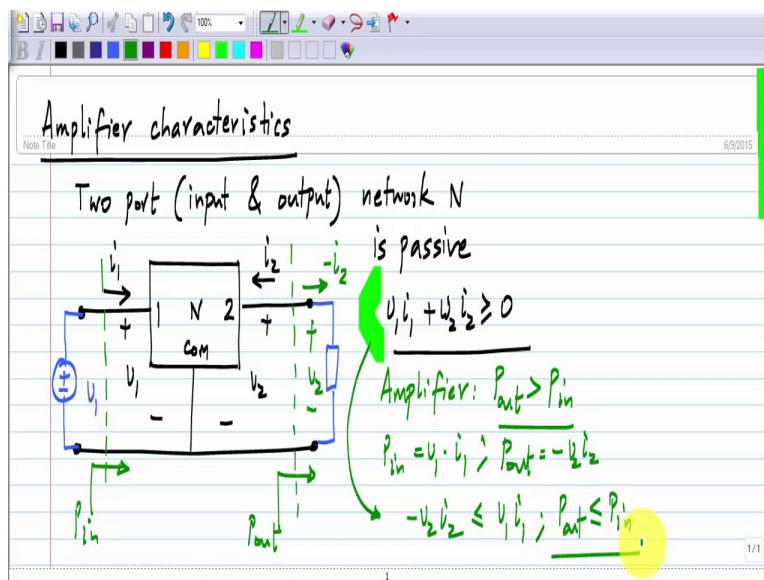 100%
B I
Amplifier characteristics
Note Title
6/9/2015
Two port (input & output) network N
is passive
i₁
i₂
-i₂
1 N 2
COM
+
+
+
v₁
v₁
v₂
v₂
-
-
-
v₁i₁ + v₂i₂ ≥ 0
Amplifier: Pout > Pin
Pin = v₁·i₁ ; Pout = -v₂i₂
-v₂i₂ ≤ v₁i₁ ; Pout ≤ Pin
Pin
Pout
1/1
1